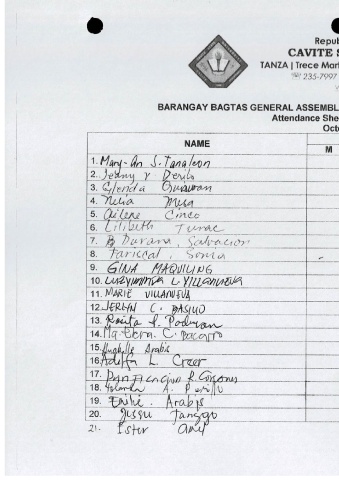 Repub
CAVITE S
TANZA | Trece Mart
235-7997
BARANGAY BAGTAS GENERAL ASSEMBL
Attendance She
Octo
NAME
M
1. Mary-An S. Tanaleon
2. Jenny V Deris
3. Glenda
4. Nelia Mesa
5. Ailene Cinco
6. Lilibeth Tunac
7. Durana, Salvacion
8. Fariscal, Sonia
9. GINA MAQUILING
10. LUZYMINDA L. VILLANUEVA
11. MARIE VILLANUEVA
12. JERLYN C. BASILIO
13. Rosita P.
14. Ma. Elena C. Bacarro
15. Anabelle Arabis
16. Adelfa L. Creer
17. R.
18. Yolanda A.
19. Emilie. Arabis
20. Jessu Tanggo
21. Ester